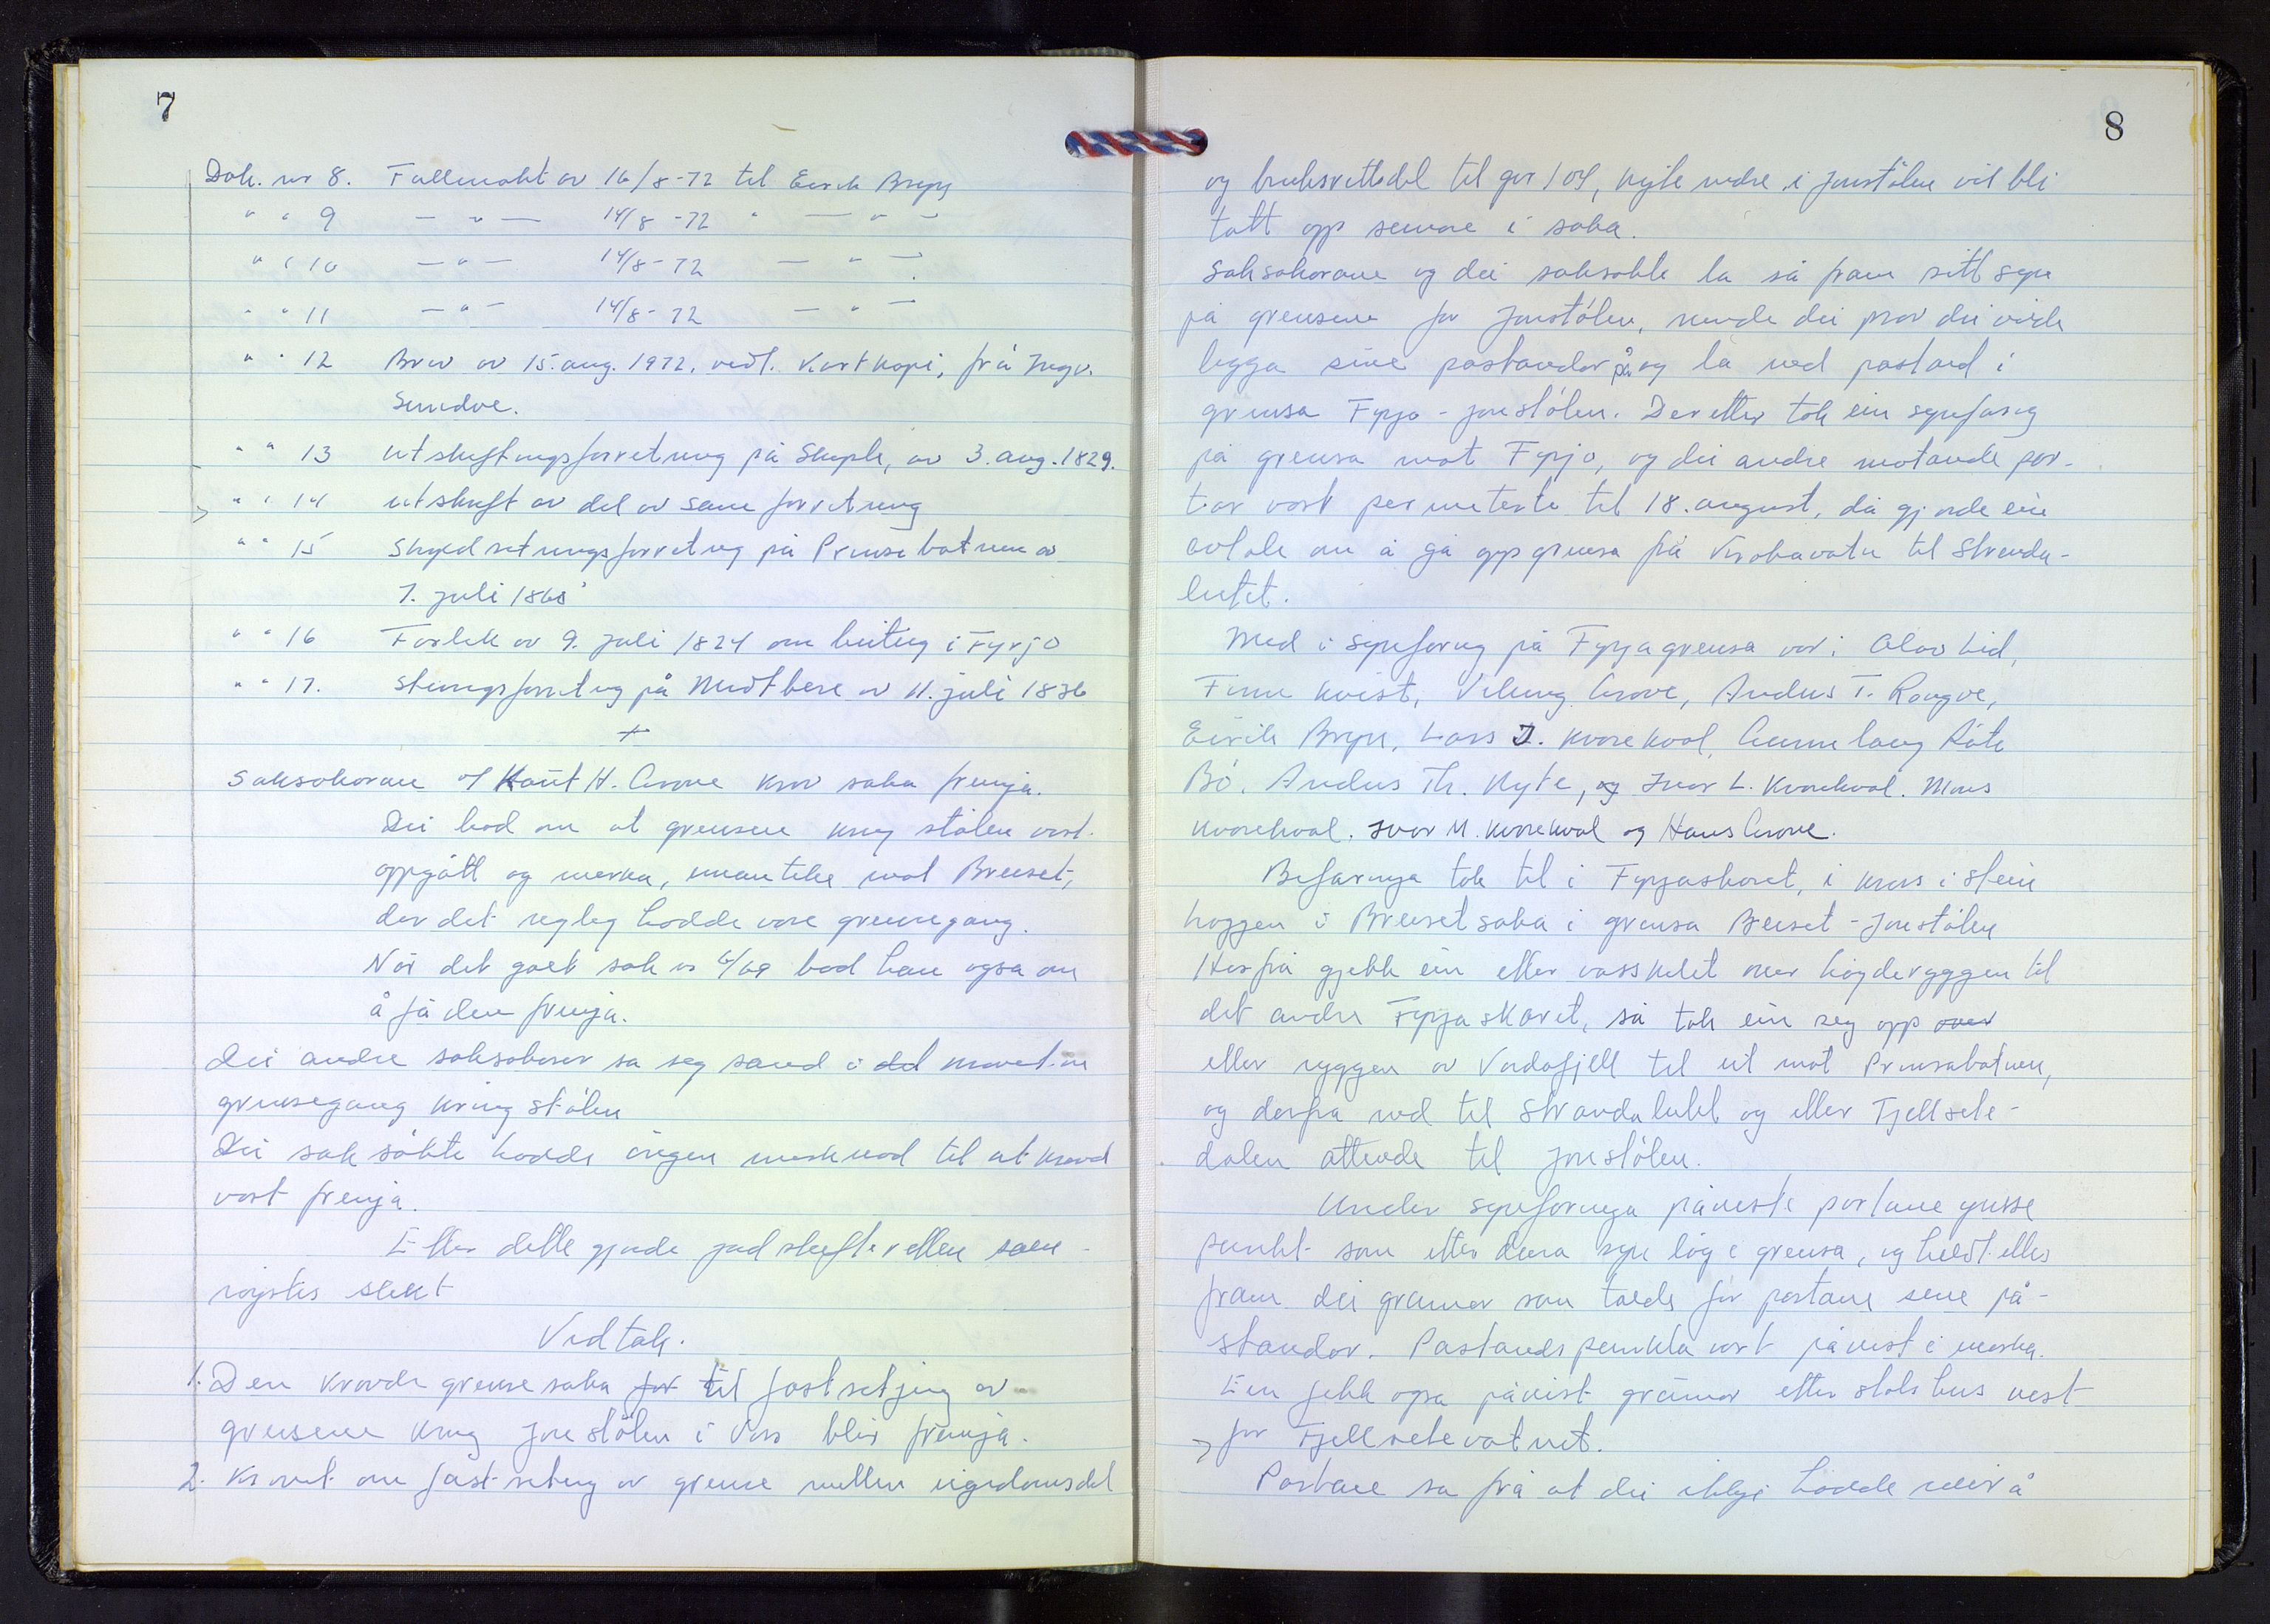 7
Dok. nr 8. Fullmakt av 16/8-72 til Eirik Bryn
" " 9 — " — 14/8-72 " — " —
" " 10 — " — 14/8-72 — " —
" " 11 — " — 14/8-72 — " —
" " 12 Brev av 15. aug. 1972, vedl. Kartkopi, frå Ingv.
Sundve.
" " 13 utskiftingsforretning på Skiple, av 3. aug. 1829.
" " 14 utskrift av del av same forretning
" " 15 Skyldsetningsforretning på Prinsabotnen av
7. juli 1868
" " 16 Forlik av 9. juli 1824 om beiting i Fyrjo
" " 17. Stemngsforretng på Midtbere av 11. juli 1836
+
Saksøkarane og Knut H. Grove krov saka fremja.
Dei bad om at grensene kring stølen vart
oppgått og merka, unantake mot Breiset,
der det regleg hadde vore grensegang.
Når det galt sak nr 6/69 bad han også om
å få den fremja.
Dei andre saksøkarar sa seg samd i kravet om
grensegang kring stølen
Dei saksøkte hadde ingen merknad til at kravd
vart fremja.
Etter dette gjorde jordskifteretten sam-
røystes slikt
Vedtak.
1. Den kravde grensesaka for til fastsetjing av
grensene kring Jonstølen i Voss blir fremja.
2. Kravet om fastseting av grense mellom eigedomsdel
8
og bruksrettsdel til gnr 104, Kyte nedre i Jonstølen vil bli
tatt opp seinare i saka.
Saksøkarane og dei saksøkte la så fram sitt syn
på grensene for Jonstølen, nemde dei prov dei ville
byggja sine påstandar på og la ned påstand i
grensa Fyrjo - Jonstølen. Deretter tok ein synfaring
på grensa mot Fyrjo, og dei andre møtande par-
tar vart permiterte til 18. august, då gjorde ein
avtale om å gå opp grensa frå Krokavatn til Stranda-
lutet.
Med i synfaring på Fyrjagrensa var: Olav Lid,
Finn Kvist, Viking Grove, Anders T. Rongve,
Eirik Bryn, Lars J. Kvarekval, Gunnlaug Røte
Bø, Anders Th. Kyte, og Ivar L. Kvarekval. Mons
Kvarekval. Ivar M. Kvarekval og Hans Grove.
Befaringa tok til i Fyrjaskoret, i kross i stein
hoggen i Breisetsaka i grensa Breiset - Jonstølen
Herfrå gjekk ein etter vasskilet over høgderyggen til
det andre Fyrjaskaret, så tok ein seg opp over
etter ryggen av Vardafjell til ut mot Prinsabotnen,
og derfra ned til Strandalutet og etter Fjellsete-
dalen attende til Jonstølen.
Under synfaringa påviste partane ymse
punkt som etter deira syn låg i grensa, og heldt elles
fram dei grunnar som talde for partane sine på-
standar. Påstandspunkta vart påvist i marka.
Ein fekk også påvist grunnar etter stølshus vest
for Fjellsetevatnet.
Partane sa frå at dei ikkje hadde meir å